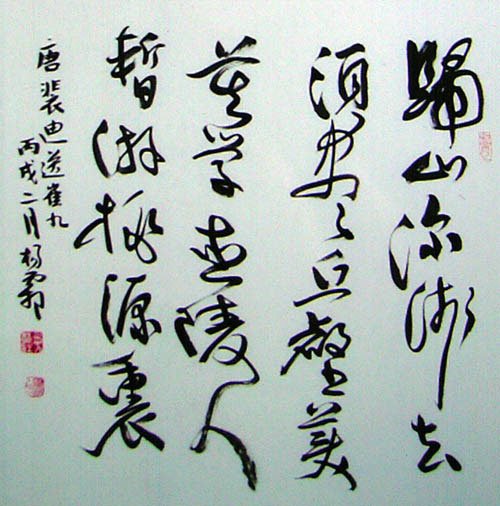 歸山深淺去
須尽丘壑美
莫学武陵人
暫游桃源裏
唐裴迪送崔九
丙戌二月楊